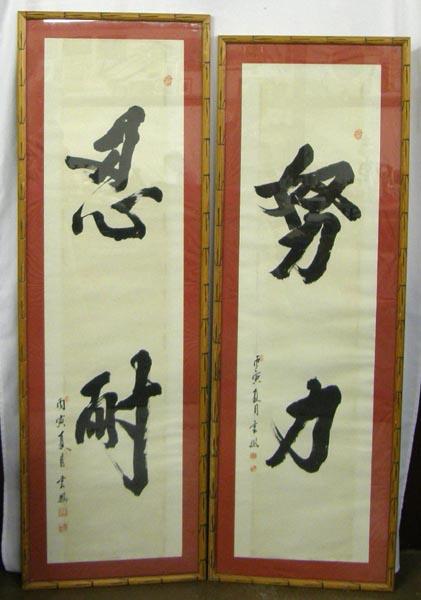 忍耐
丙寅夏月
努力
丙寅夏月